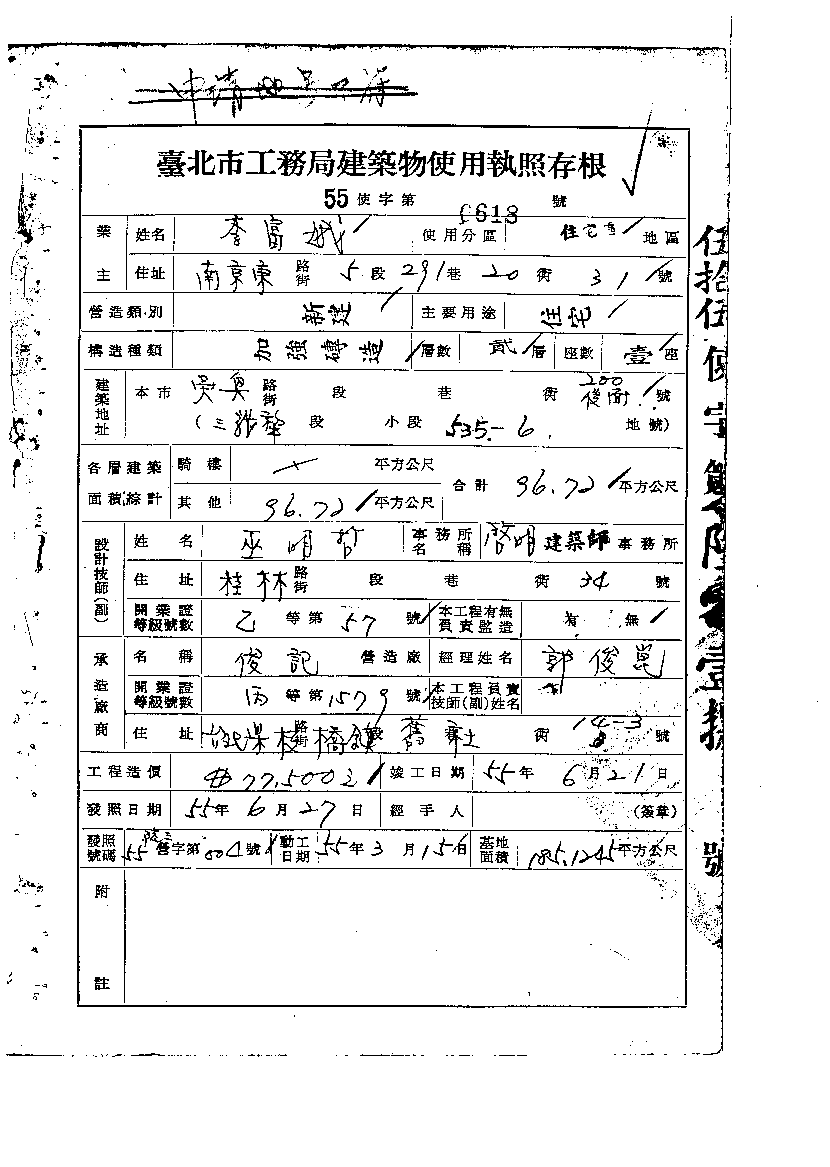 臺北市工務局建築物使用執照存根
55使字第 0618 號
業主 姓名 李富城 使用分區 住宅 地區
住址 南京東路街 5段 291巷 20衖 31號
營造類別 新建 主要用途 住宅
構造種類 加強磚造 層數 貳層 座數 壹座
建築地址 本市 吳興路街 段 巷 衖 200 後面 號
(三張犂段 小段 535-6 地號)
各層建築面積綜計 騎樓 平方公尺 合計 96.72 平方公尺
其他 96.72 平方公尺
設計技師(副) 姓名 巫明哲 事務所名稱 啓明建築師事務所
住址 桂林路街 段 巷 衖 34 號
開業證等級號數 乙等第 57 號 本工程有無負責監造 有 無
承造廠商 名稱 俊記營造廠 經理姓名 郭俊崑
開業證等級號數 丙等第 1579 號 本工程負責技師(副)姓名
住址 路街 橋鎮 段 舊 社 巷 衖 14-3 號
工程造價 77,500 竣工日期 55年6月21日
發照日期 55年6月27日 經手人 (簽章)
發照號碼 55 營字第 004 號 動工日期 55年3月15日 基地面積 185.1245平方公尺
附註
伍拾伍使字第 壹捌號